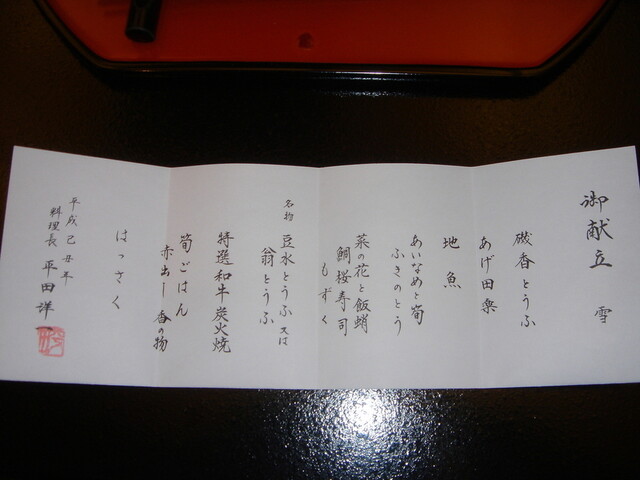 御献立 雪
磯香とうふ
あげ田楽
地魚
あいなめと筍
ふきのとう
菜の花と飯蛸
鯛桜寿司
もずく
名物 豆水とうふ 又は
翁とうふ
特選和牛炭火焼
筍ごはん
赤出し 香の物
はっさく
平成己丑年
料理長 平田洋一